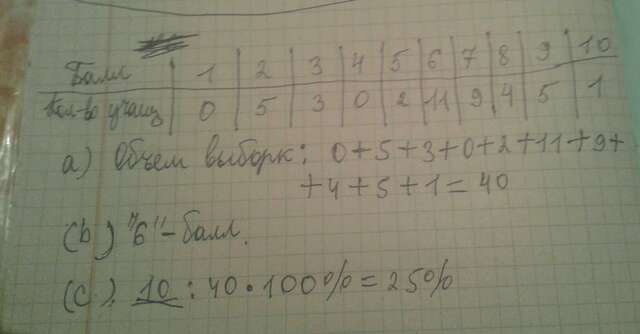 Балл 1 2 3 4 5 6 7 8 9 10
Кол-во учащ 0 5 3 0 2 11 9 4 5 1
a) Объем выборк: 0+5+3+0+2+11+9+
+4+5+1=40
(b) "6"-балл.
(c). 10 : 40 · 100% = 25%